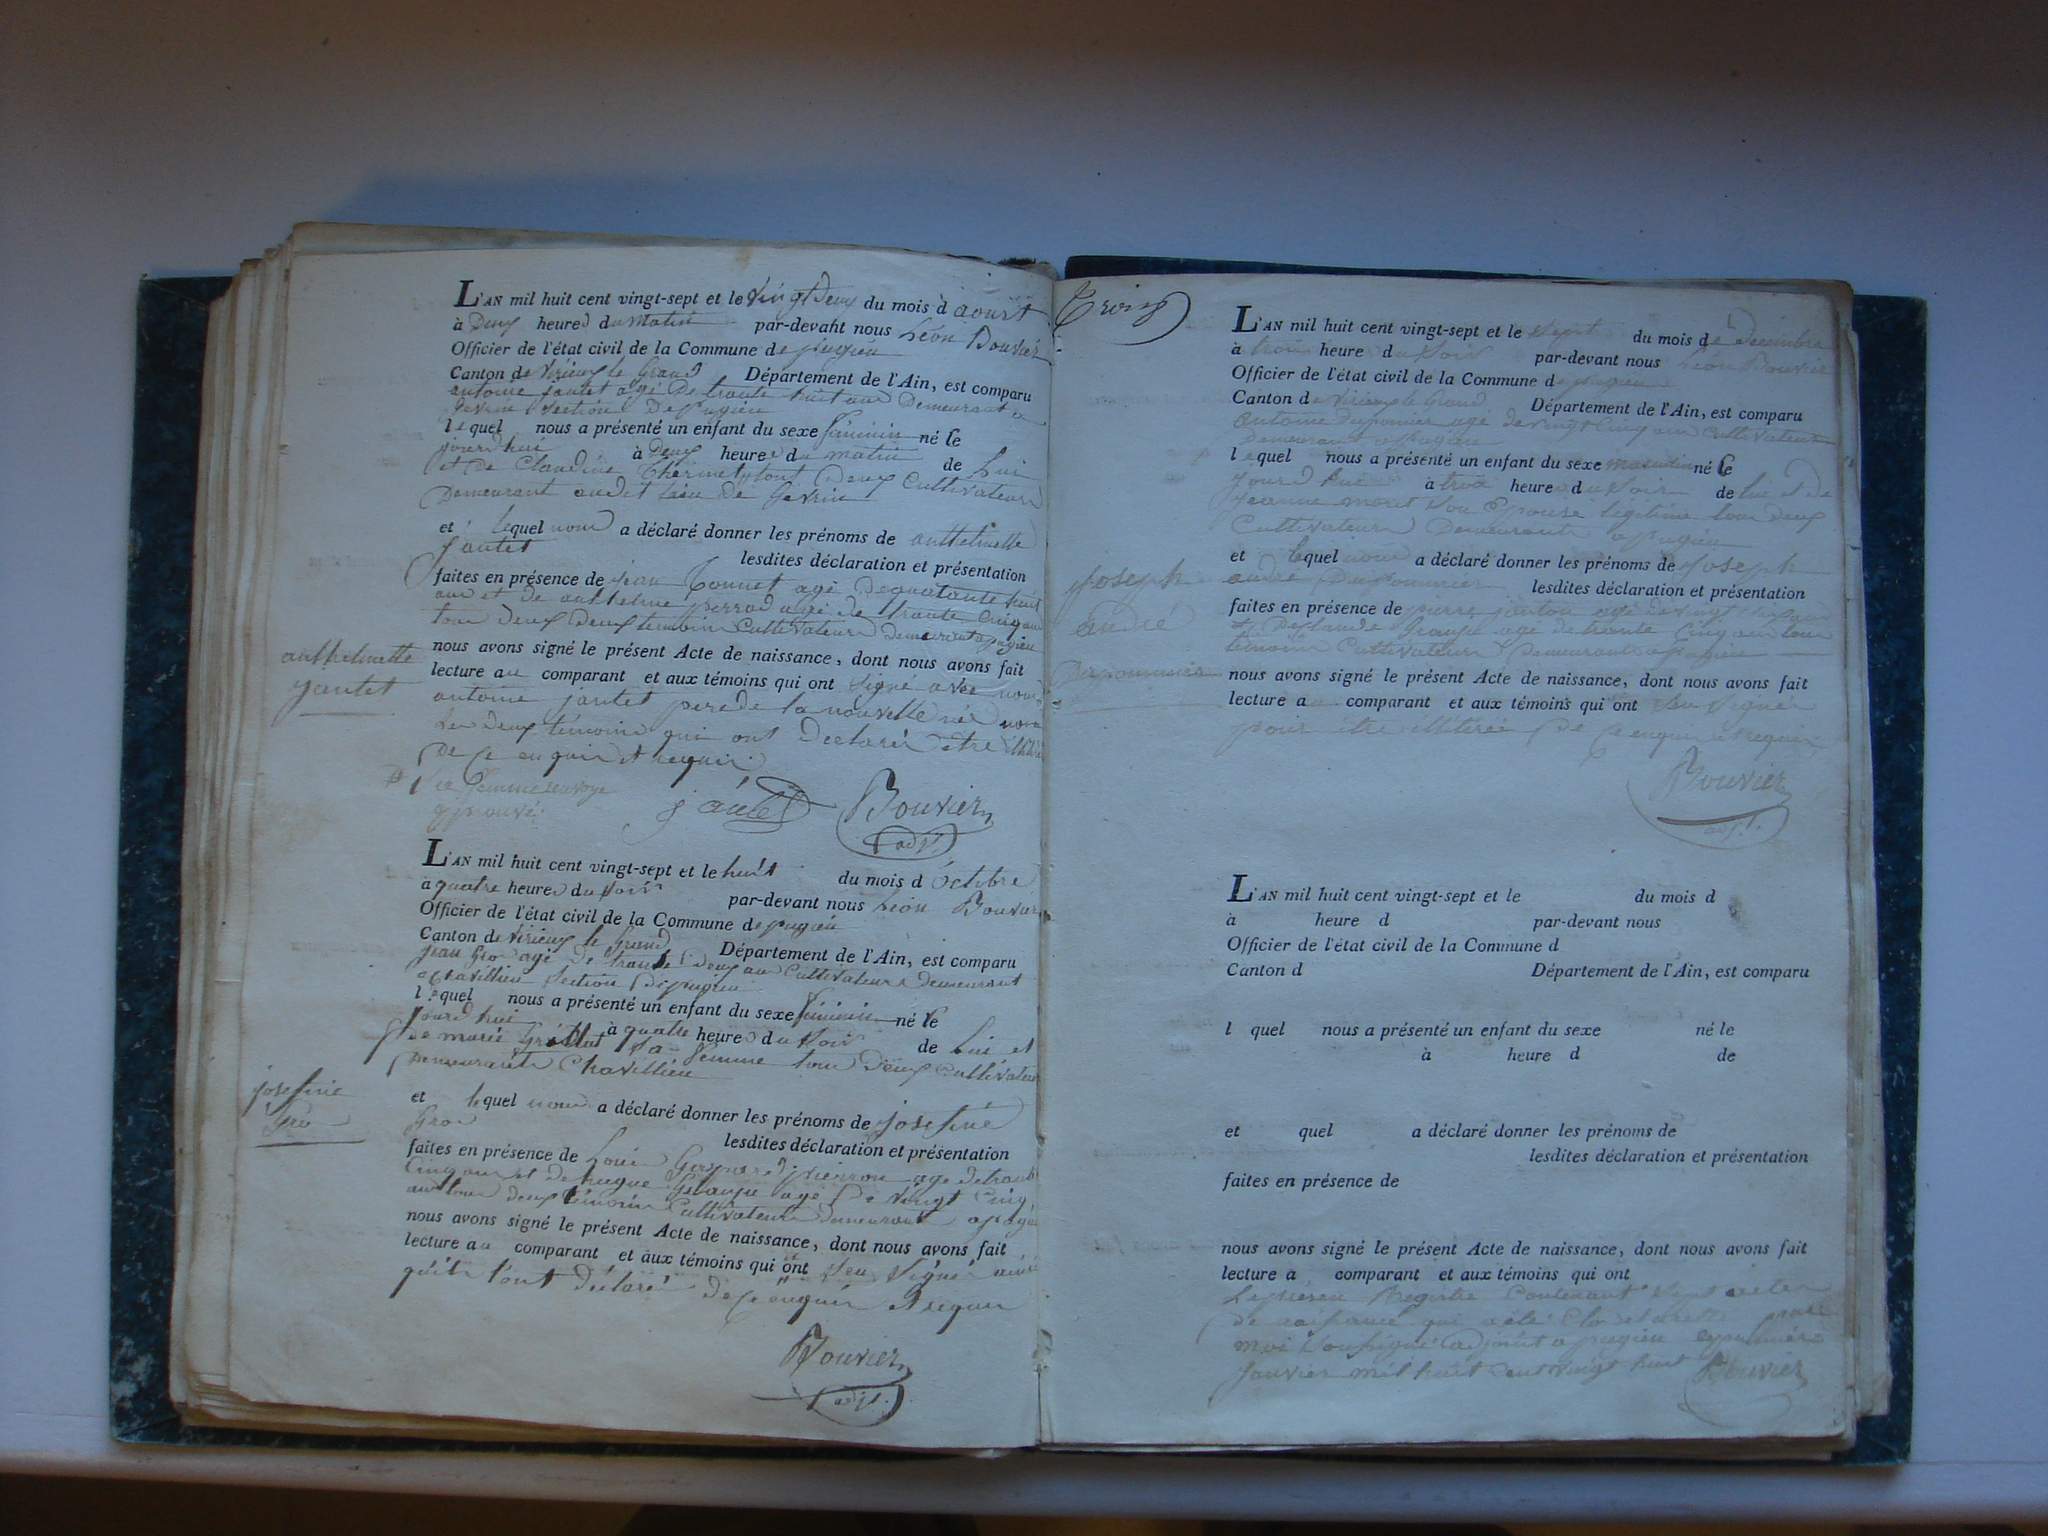 L'AN mil huit cent vingt-sept et le vingt Deux du mois d aoust
à Deux heures du matin par-devant nous Léon Bouvier
Officier de l'état civil de la Commune de pugieu
Canton de Virieux le Grand Département de l'Ain, est comparu
antoine jantet agé De trante huit ans Demeurant a
Gevrin Section De pugieu
lequel nous a présenté un enfant du sexe féminin né le
jourdhui à Deux heures du matin de Lui
et De Claudine tout Deux Cultivateurs
Demeurant audit lieu de Gevrin
et lequel nous a déclaré donner les prénoms de anthelmette
jantet lesdites déclaration et présentation
faites en présence de jean Bonnet agé De quatante huit
ans et de anthelme perrod agé de trante Cinq ans
tous deux Deux temoins Cultivateurs Demeurant a pugieu
anthelmette
jantet
nous avons signé le présent Acte de naissance, dont nous avons fait
lecture au comparant et aux témoins qui ont Signé avec nous
antoine jantet pere de la nouvelle née non
Les deux témoins qui ont Declaré être illitéré
De Ce enquis et requis
Sa femme renvoye
aprouvé
jantet Bouvier
adjt.
L'AN mil huit cent vingt-sept et le huit du mois d Octobre
à quatre heures du Soir par-devant nous Léon Bouvier
Officier de l'état civil de la Commune de pugieu
Canton de Virieux le Grand Département de l'Ain, est comparu
jean Gros agé de trante Deux ans Cultivateurs Demeurant
a Chavillieu Section De pugieu
lequel nous a présenté un enfant du sexe féminin né le
jourdhui à quatre heures du Soir de Lui et
de marie Sa femme tous Deux Cultivateurs
Demeurant Chavillieu
josefine
Gros
et lequel nous a déclaré donner les prénoms de josefine
Gros lesdites déclaration et présentation
faites en présence de Louis Gaspard pierron agé de trante
Cinq ans et de hugue Granju agé De vingt Cinq
ans tous deux témoins Cultivateurs Demeurant a pugieu
nous avons signé le présent Acte de naissance, dont nous avons fait
lecture au comparant et aux témoins qui ont Seu Signer ainsi
qu'ils l'ont déclaré de Ce enquis et requis
Bouvier
adjt.
Trois
L'AN mil huit cent vingt-sept et le Sept du mois de Décembre
à trois heure du Soir par-devant nous Léon Bouvier
Officier de l'état civil de la Commune de pugieu
Canton de Virieux le Grand Département de l'Ain, est comparu
antoine Dupommier agé de vingt Cinq ans Cultivateur
Demeurant a pugieu
lequel nous a présenté un enfant du sexe masculin né le
jourd hui à trois heure du Soir de lui et de
jeanne Son Epouse legitime tous deux
Cultivateurs Demeurants a pugieu
et lequel nous a déclaré donner les prénoms de Joseph
andré Dupommier lesdites déclaration et présentation
Joseph
andré
Dupommier
faites en présence de pierre agé de vingt
De Claude Granju agé de trante Cinq ans tous
témoins Cultivateurs Demeurants a pugieu
nous avons signé le présent Acte de naissance, dont nous avons fait
lecture a comparant et aux témoins qui ont Seu Signer
pour être illitéré De Ce enquis et requis
Bouvier
adjt.
L'AN mil huit cent vingt-sept et le du mois d
à heure d par-devant nous
Officier de l'état civil de la Commune d
Canton d Département de l'Ain, est comparu
l quel nous a présenté un enfant du sexe né le
à heure d de
et quel a déclaré donner les prénoms de
lesdites déclaration et présentation
faites en présence de
nous avons signé le présent Acte de naissance, dont nous avons fait
lecture a comparant et aux témoins qui ont
Le présent Registre Contenant actes
de naissance qui a été Clos et arreté par
moi Soussigné adjoint a pugieu le premier
janvier mil huit cent vingt huit Bouvier